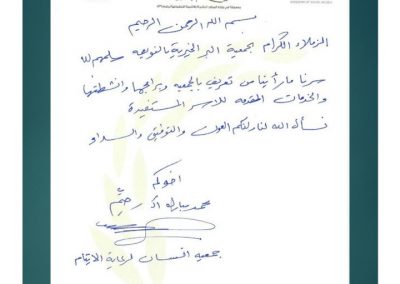 بسم الله الرحمن الرحيم
الزملاء الكرام بجمعية البر الخيرية سلمهم الله
سرنا ما رأينا من تعريف بالجمعيه وبرامجها وانشطتها
والخدمات المقدمه للاسر المستفيدة
نسأل الله لنا ولكم العون والتوفيق والسداد
اخوكم
محمد
جمعيه انسان لرعاية الايتام